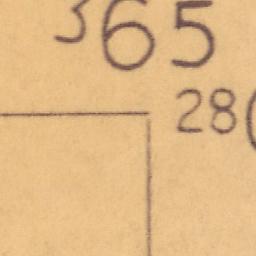 365
28(